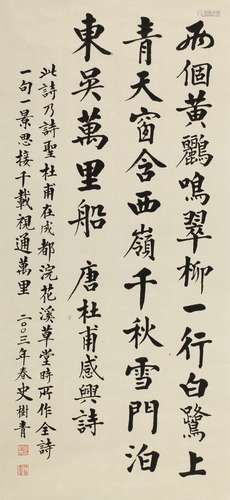 兩個黃鸝鳴翠柳一行白鷺上
青天窗含西嶺千秋雪門泊
東吳萬里船 唐杜甫感興詩
此詩乃詩聖杜甫在成都浣花溪草堂時所作全詩
一句一景思接千載視通萬里 二〇〇三年春史樹青